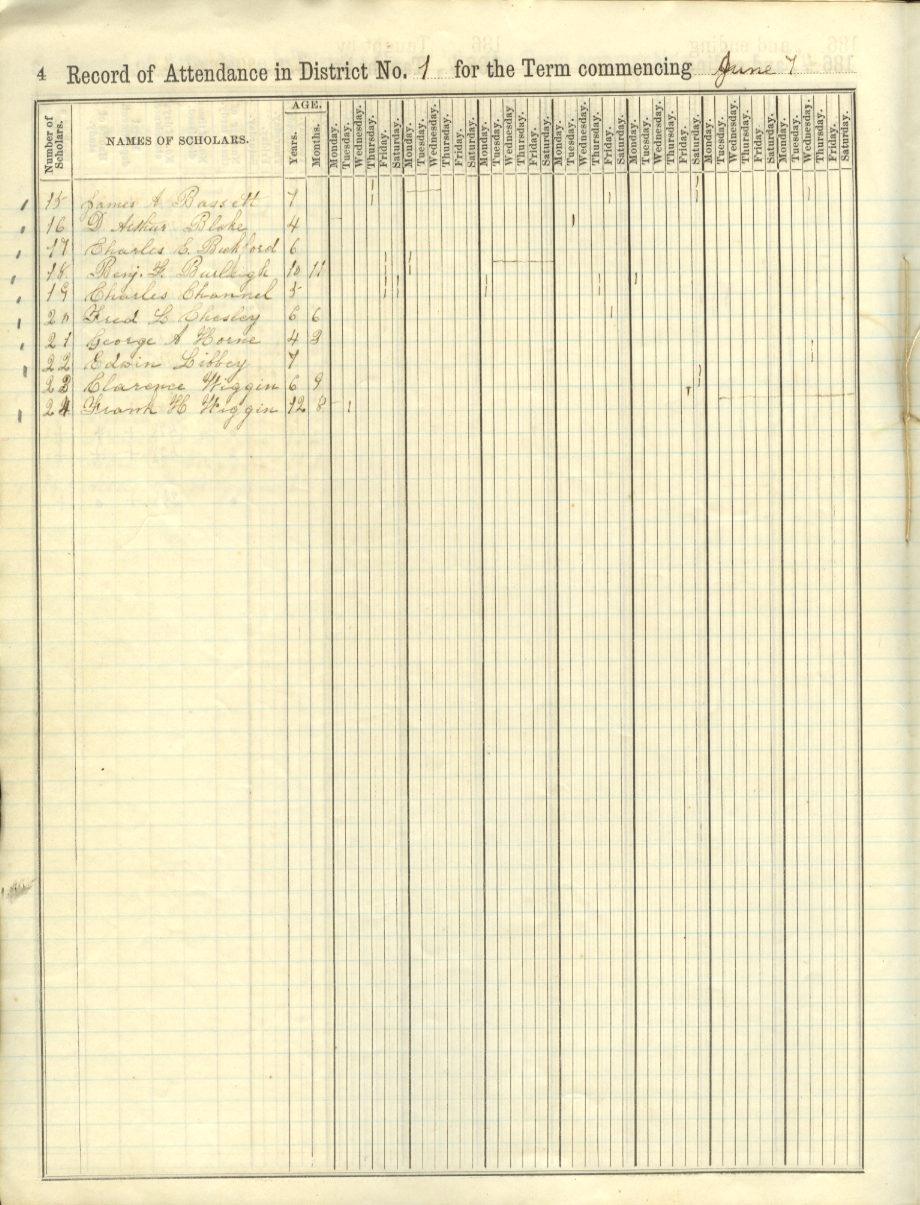 4 Record of Attendance in District No. 1 for the Term commencing June 7
Number of Scholars. NAMES OF SCHOLARS. AGE. Years. Months. Monday. Tuesday. Wednesday. Thursday. Friday. Saturday. Monday. Tuesday. Wednesday. Thursday. Friday. Saturday. Monday. Tuesday. Wednesday Thursday. Friday. Saturday. Monday. Tuesday. Wednesday. Thursday. Friday. Saturday. Monday. Tuesday. Wednesday. Thursday. Friday. Saturday. Monday. Tuesday. Wednesday. Thursday. Friday. Saturday. Monday. Tuesday. Wednesday. Thursday. Friday. Saturday.
15 James A Bassett 7
16 D Arthur Blake 4
17 Charles E. Bickford 6
18 Benj. F. Burleigh 10 11
19 Charles Channel 5
20 Fred L Chesley 6 6
21 George A Horne 4 3
22 Edwin Libbey 7
23 Clarence Wiggin 6 9
24 Frank H Wiggin 12 8